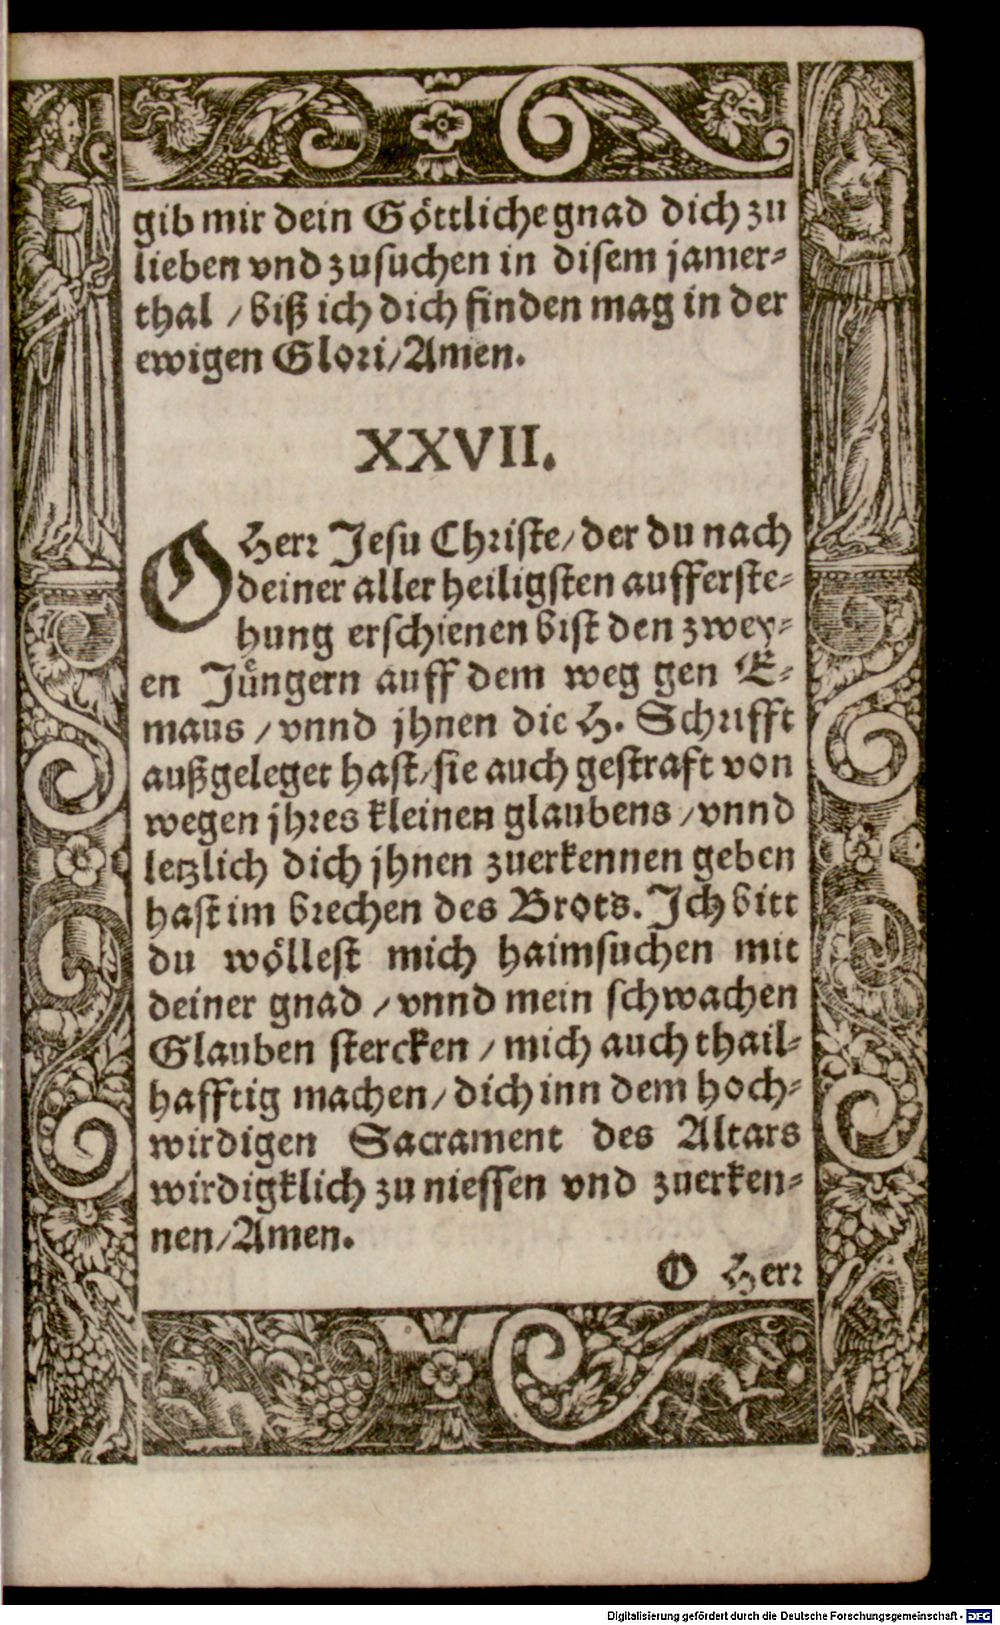 gib mir dein Göttliche gnad dich zu
lieben vnd zusuchen in disem jamer-
thal / biß ich dich finden mag in der
ewigen Glori / Amen.
XXVII.
O Herr Jesu Christe / der du nach
deiner aller heiligsten aufferste-
hung erschienen bist den zwey-
en Jüngern auff dem weg gen E-
maus / vnnd jhnen die H. Schrifft
außgeleget hast / sie auch gestraft von
wegen jhres kleinen glaubens / vnnd
letzlich dich jhnen zuerkennen geben
hast im brechen des Brots. Ich bitt
du wöllest mich haimsuchen mit
deiner gnad / vnnd mein schwachen
Glauben stercken / mich auch thail-
hafftig machen / dich inn dem hoch-
wirdigen Sacrament des Altars
wirdigklich zu niessen vnd zuerken-
nen / Amen.
O Herr
Digitalisierung gefördert durch die Deutsche Forschungsgemeinschaft - DFG